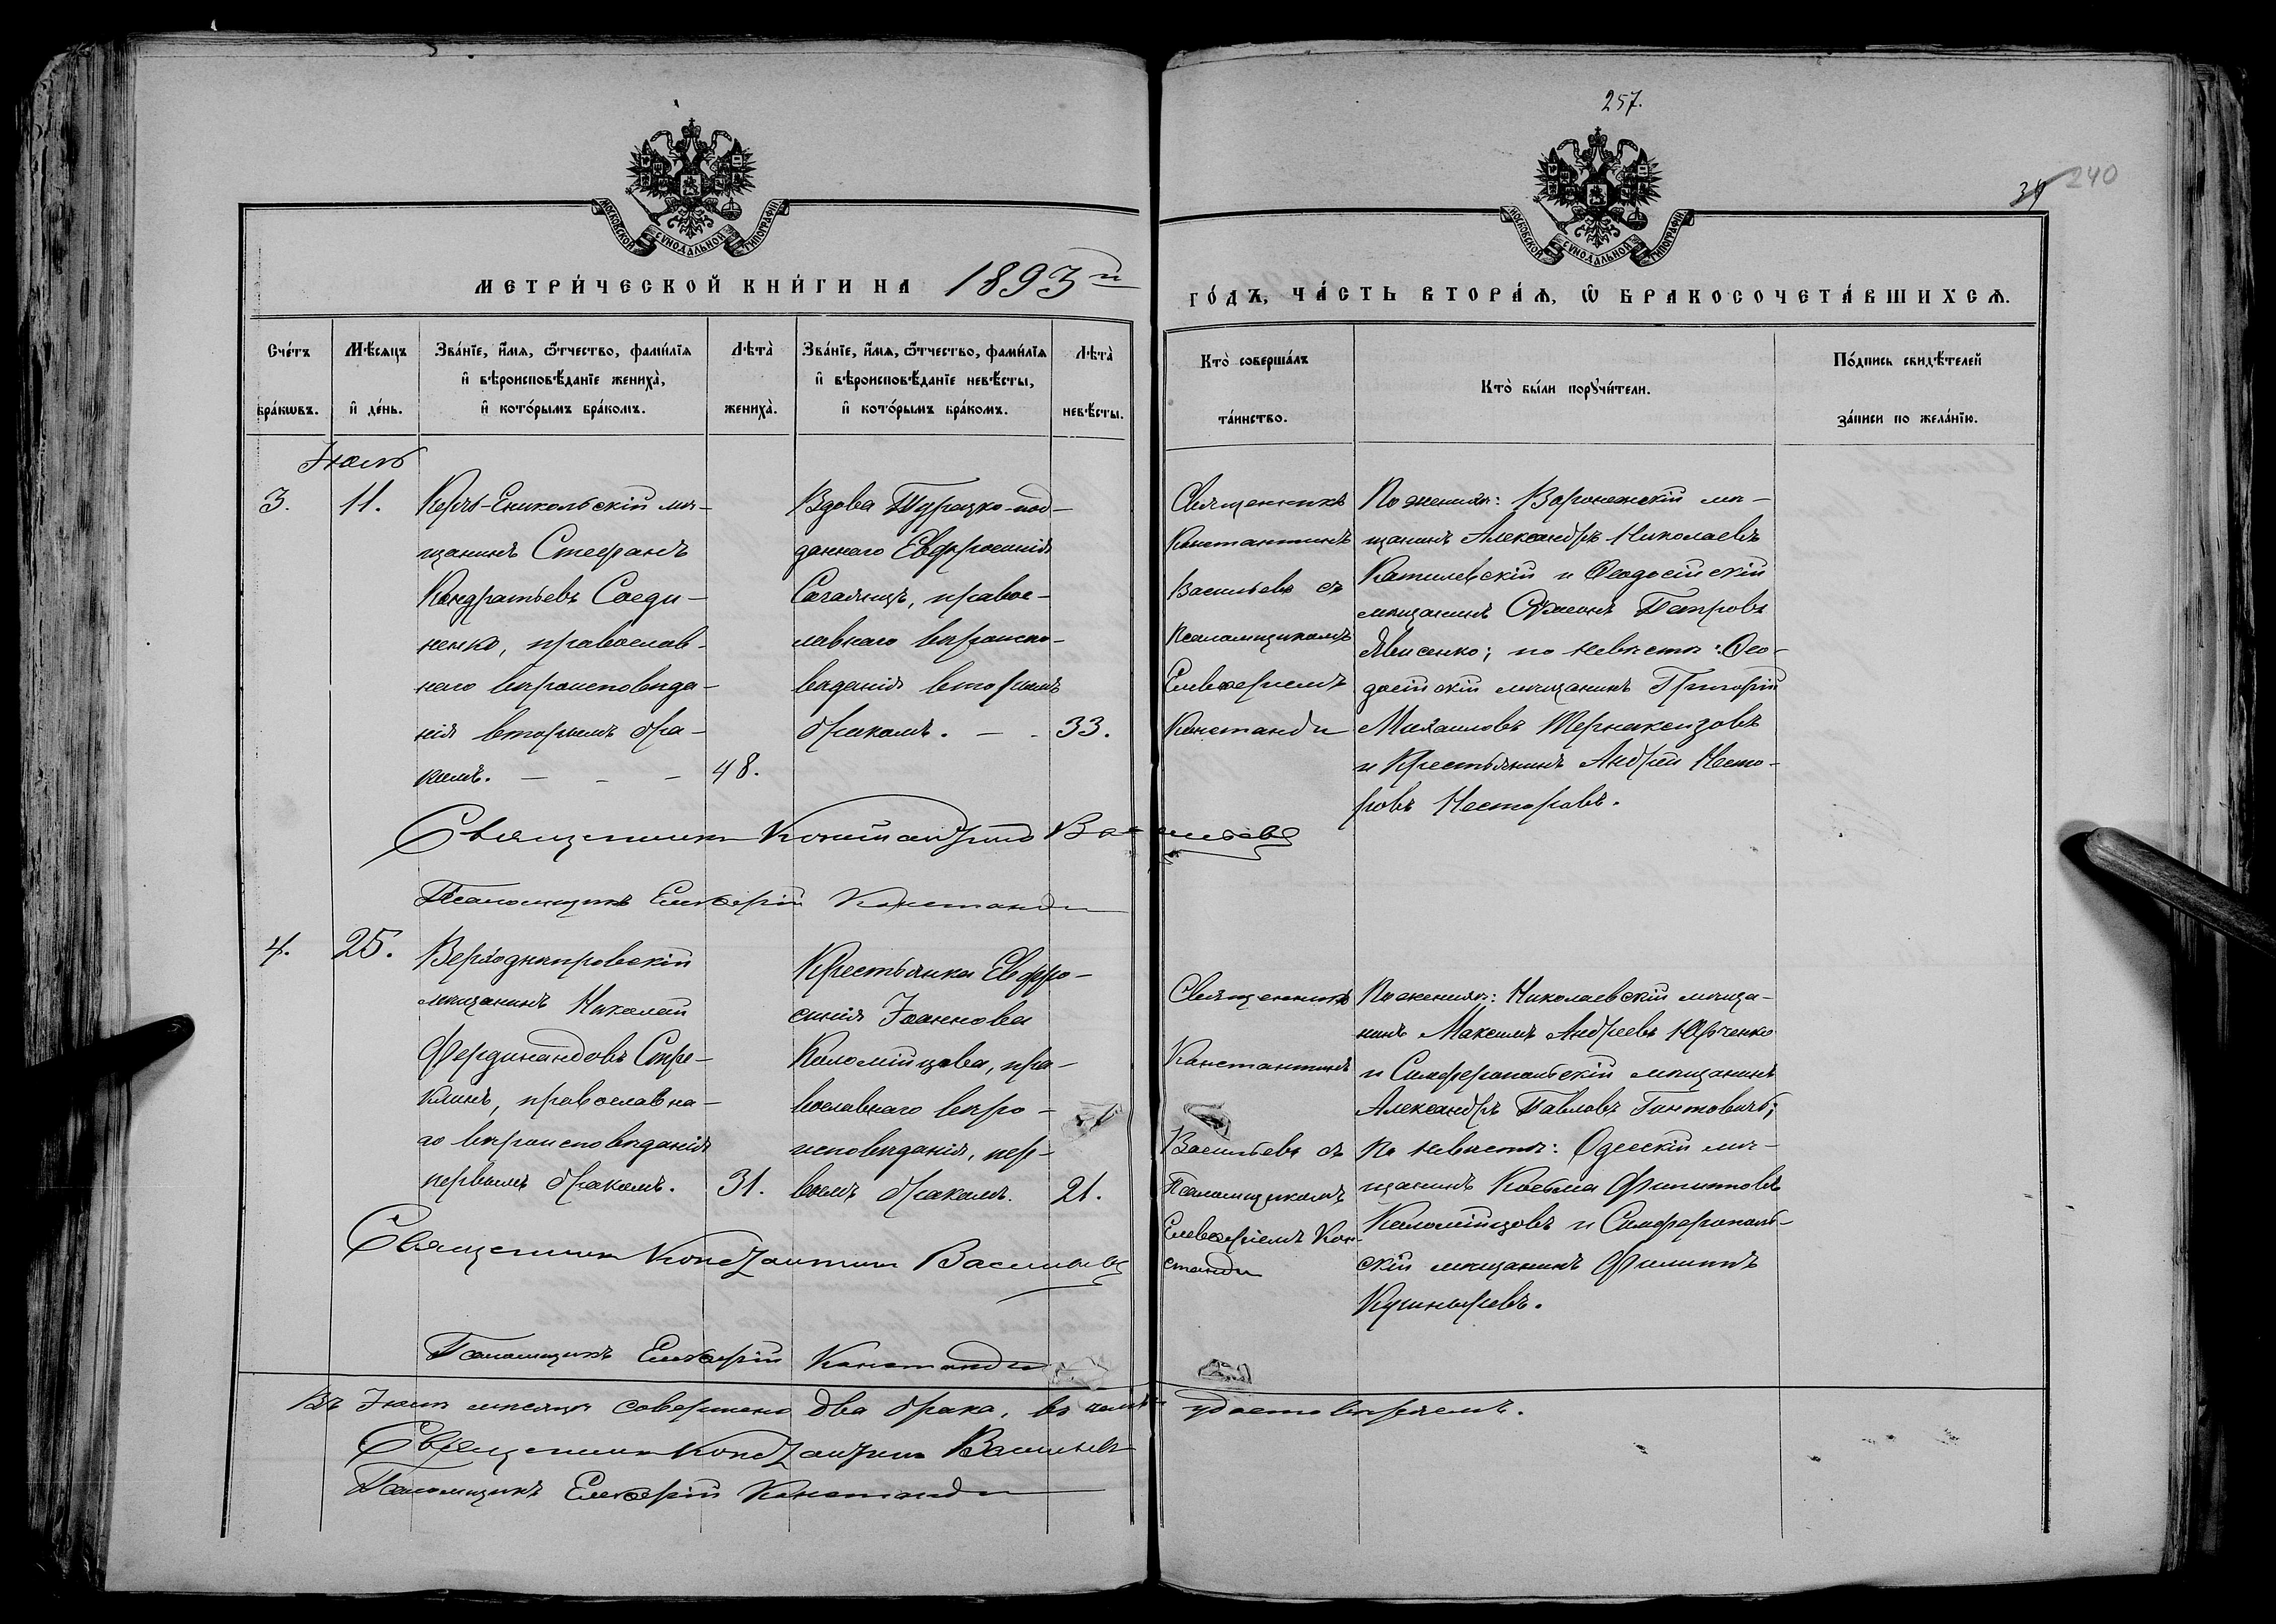 257.
34 240
МОСКОВСКОЙ СѴНОДАЛЬНОЙ ТИПОГРАФІИ
МОСКОВСКОЙ СѴНОДАЛЬНОЙ ТИПОГРАФІИ
МЕТРИ́ЧЕСКОЙ КНИ́ГИ НА 1893й
ГО́ДЪ, ЧА́СТЬ ВТОРА́Ѧ, Ѽ БРАКОСОЧЕТА́ВШИХСѦ.
Сче́тъ
бра́кѡвъ.
Мѣ́сѧцъ
и҆ де́нь.
Зва́нїе, и҆́мѧ, ѻ҆́тчество, фами́лїѧ
и҆ вѣроисповѣ́данїе жениха̀,
и҆ кото́рымъ бра́комъ.
Лѣта̀
жениха̀.
Зва́нїе, и҆́мѧ, ѻ҆́тчество, фами́лїѧ
и҆ вѣроисповѣ́данїе невѣ́сты,
и҆ кото́рымъ бра́комъ.
Лѣта̀
невѣ́сты.
Кто̀ соверша́лъ
та́инство.
Кто̀ бы́ли порꙋчи́тели.
По́дпись свидѣ́телей
за́писи по жела́нїю.
Іюль
3.
11.
Керчь-Еникольскій мѣ-
щанинъ Стефанъ
Кондратьевъ Соеди-
ненко, православ-
наго вѣроисповѣда-
нія вторымъ бра-
комъ. — - —
48.
Вдова Турецко-под-
даннаго Евфросинія
правос-
лавнаго вѣроиспо-
вѣданія вторымъ
бракомъ. — -
33.
Священникъ
Константинъ
Васильевъ съ
псаломщикомъ
Елевѳеріемъ
Константи
По женихѣ: Воронежскій мѣ-
щанинъ Александръ Николаевъ
и Ѳеодосійскій
мѣщанинъ Симеонъ Петровъ
по невѣстѣ: Ѳео-
досійскій мѣщанинъ Григорій
Михаиловъ
и Крестьянинъ Андрей Несто-
ровъ Несторовъ.
Священникъ Константинъ Васильевъ
Псаломщикъ Елевѳерій Константи
4.
25.
Верходнѣпровскій
мѣщанинъ Николай
Фердинандовъ Стре-
православна-
го вѣроисповѣданія
первымъ бракомъ.
31.
Крестьянка Евфро-
синія Іоаннова
Коломійцова, пра-
вославнаго вѣро-
исповѣданія, пер-
вымъ бракомъ.
21.
Священникъ
Константинъ
Васильевъ съ
Псаломщикомъ
Елевѳеріемъ Кон-
станди
По женихѣ: Николаевскій мѣща-
нинъ Максимъ Андреевъ Юрченко
и Симферопольскій мѣщанинъ
Александръ Павловъ Гинтовичъ;
По невѣстѣ: Одесскій мѣ-
щанинъ Косьма Филипповъ
Коломійцовъ и Симферополь-
скій мѣщанинъ Филиппъ
Кушныревъ.
Священникъ Константинъ Васильевъ
Псаломщикъ Елевѳерій Константи
Въ Іюлѣ мѣсяцѣ совершено два брака, въ чемъ удостовѣряемъ.
Священникъ Константинъ Васильевъ
Псаломщикъ Елевѳерій Константи